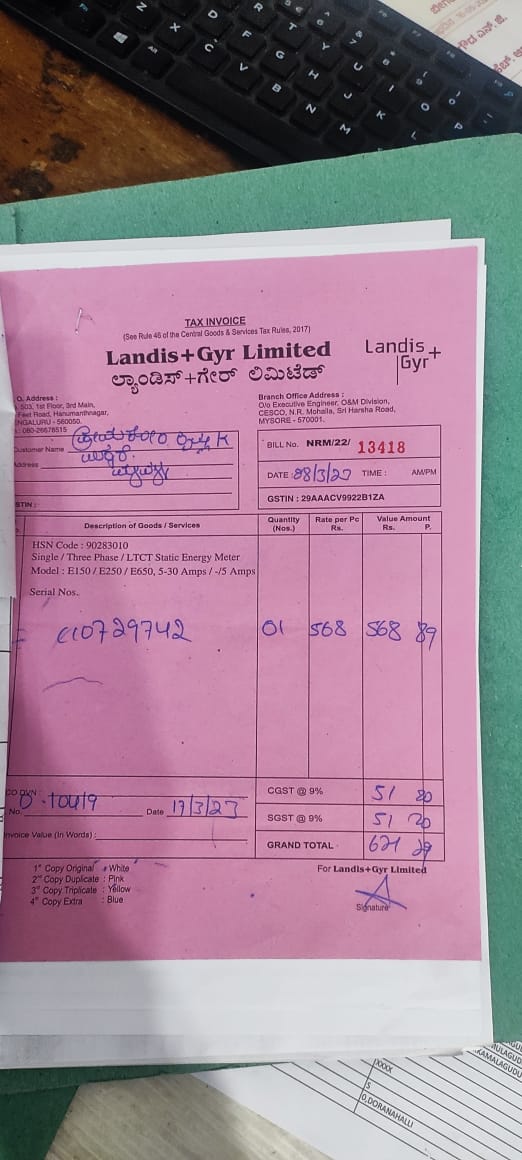 TAX INVOICE
(See Rule 46 of the Central Goods & Services Tax Rules, 2017)
Landis+Gyr Limited
ಲ್ಯಾಂಡಿಸ್+ಗೇರ್ ಲಿಮಿಟೆಡ್
Landis
Gyr+
O. Address :
503, 1st Floor, 3rd Main,
Feet Road, Hanumanthnagar,
NGALURU - 560050.
: 080-26678515
Customer Name
Address
STIN :
Branch Office Address :
O/o Executive Engineer, O&M Division,
CESCO, N.R. Mohalla, Sri Harsha Road,
MYSORE - 570001.
BILL No. NRM/22/ 13418
DATE : 28/3/23 TIME : AM/PM
GSTIN : 29AAACV9922B1ZA
Description of Goods / Services
Quantity (Nos.)
Rate per Pc Rs.
Value Amount Rs. P.
HSN Code : 90283010
Single / Three Phase / LTCT Static Energy Meter
Model : E150 / E250 / E650, 5-30 Amps / -/5 Amps
Serial Nos.
10729742 01 568 568 89
No. Date 17/3/23
Invoice Value (In Words) :
CGST @ 9% 51 20
SGST @ 9% 51 20
GRAND TOTAL 671 29
1st Copy Original : White
2nd Copy Duplicate : Pink
3rd Copy Triplicate : Yellow
4th Copy Extra : Blue
For Landis+Gyr Limited
Signature
XXXX
S
O,DORANAHALLI